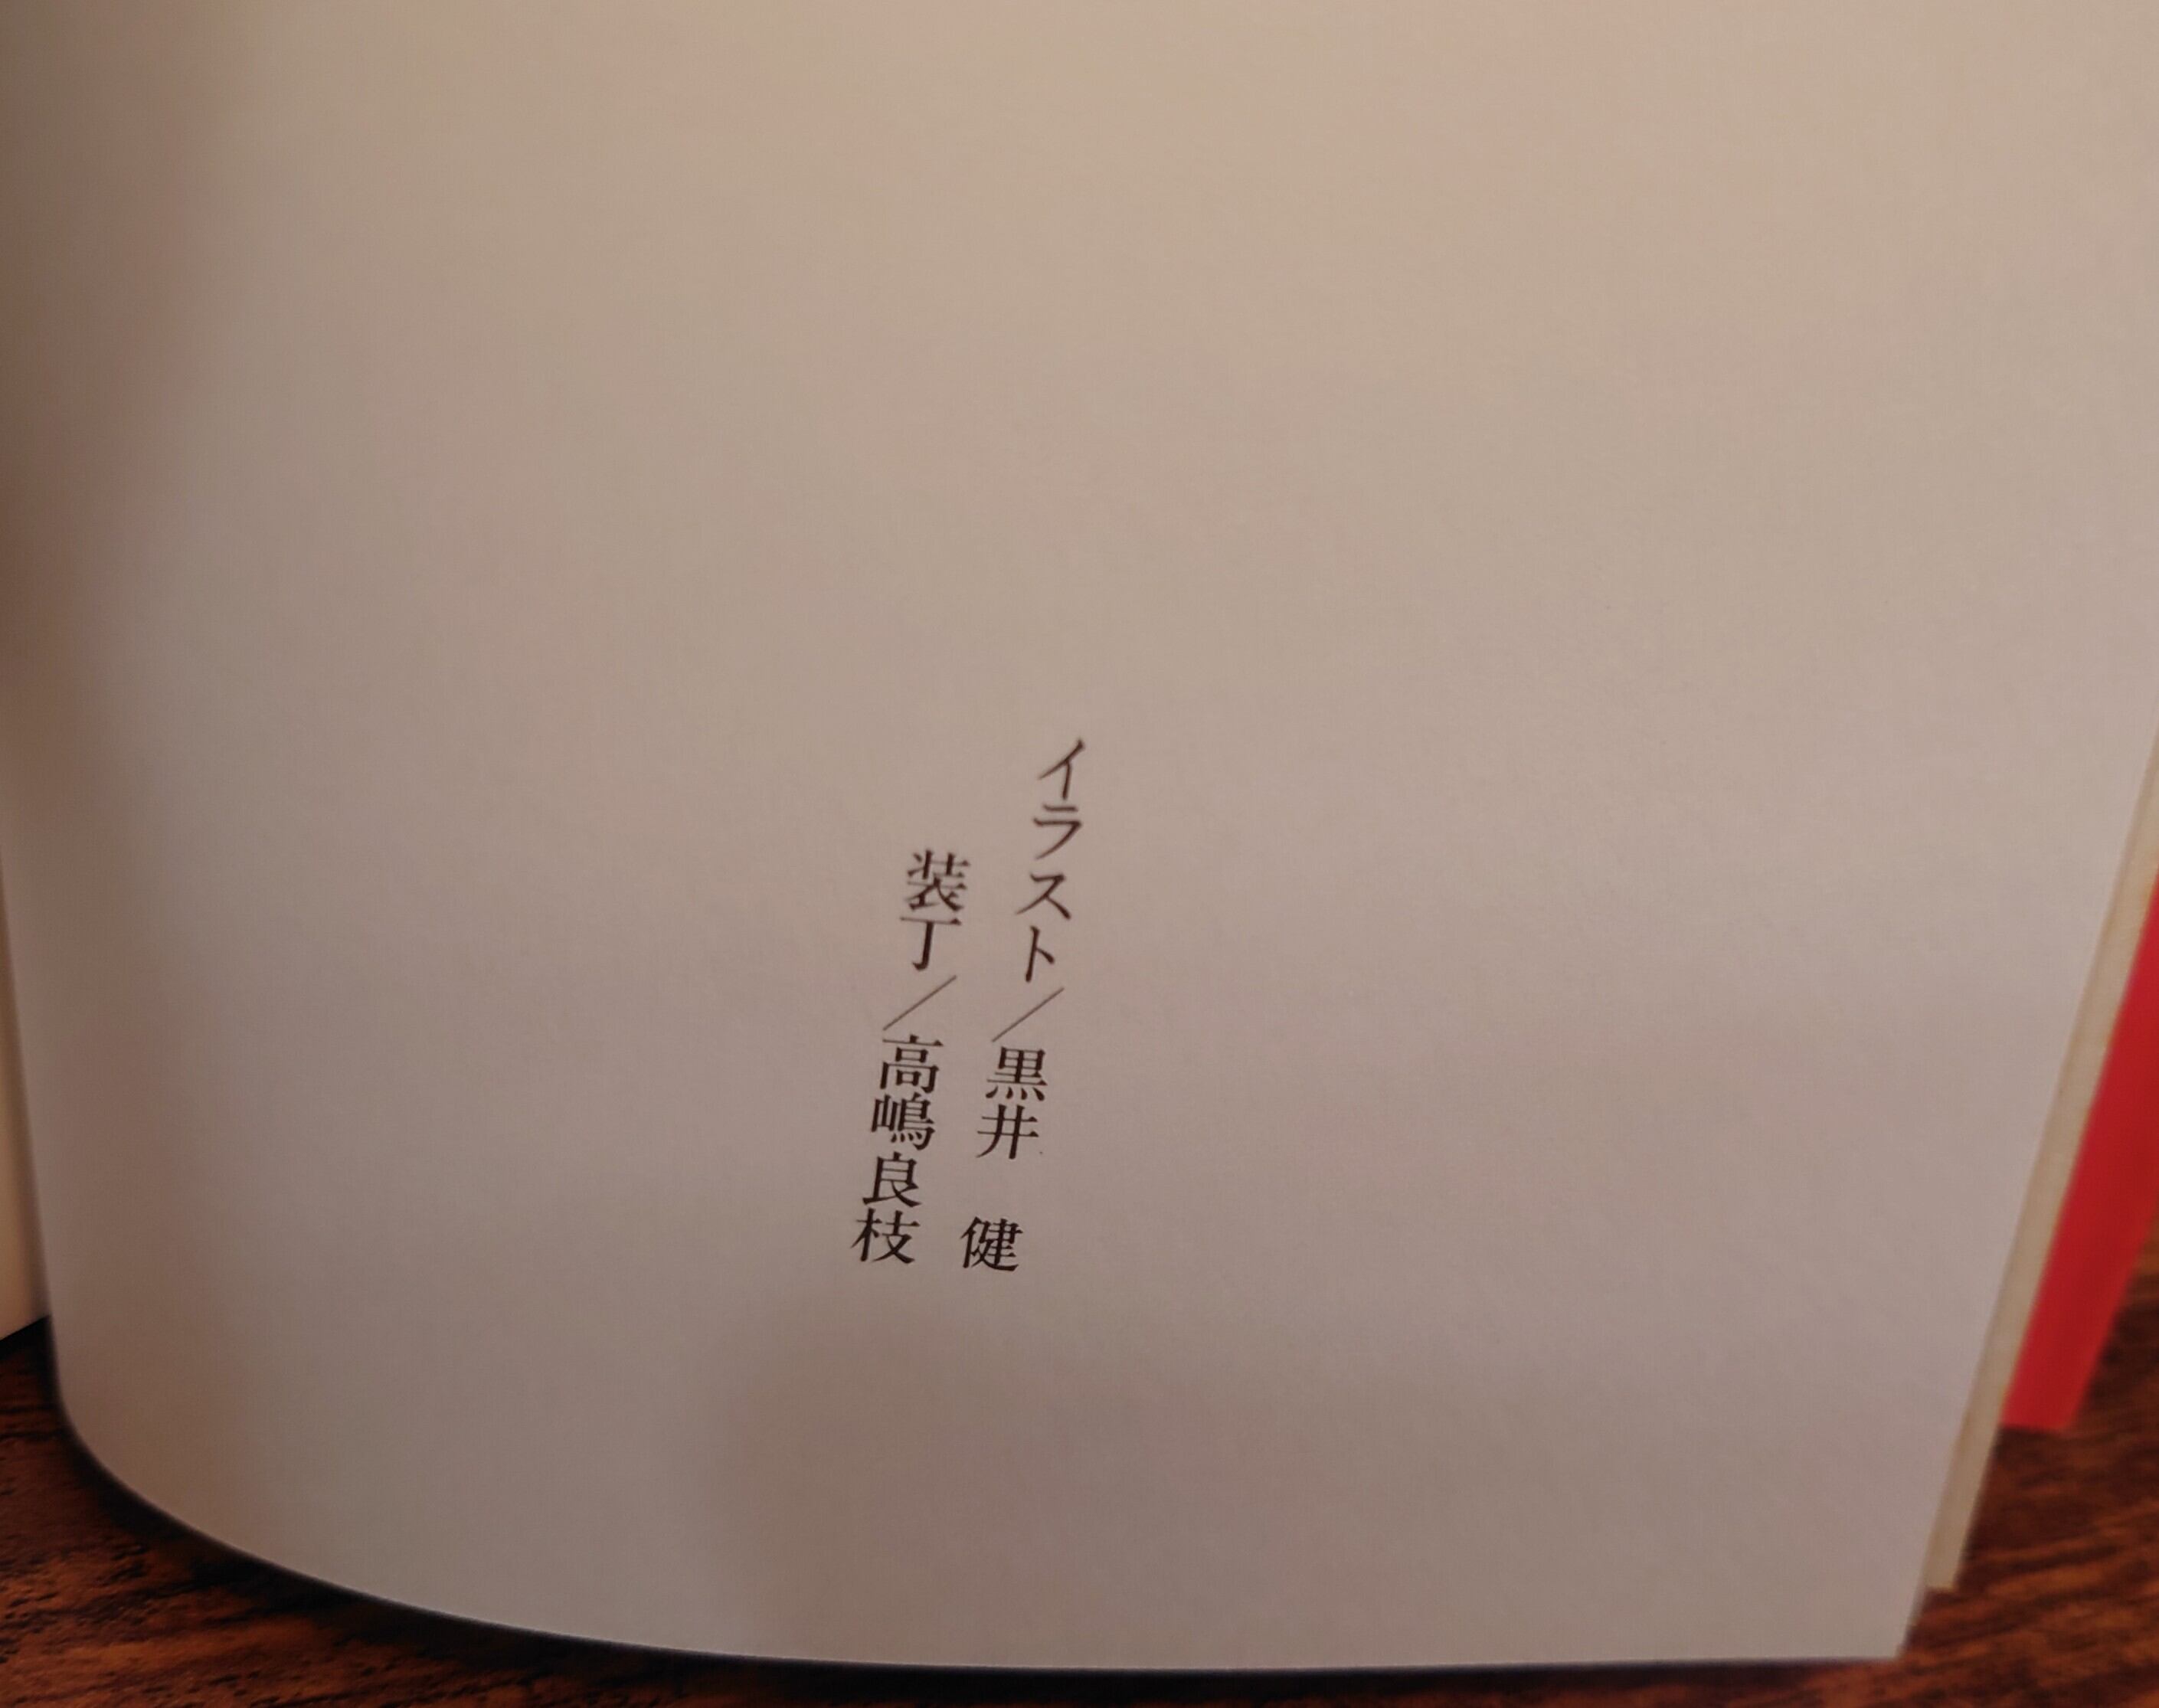 イラスト／黒井　健
装丁／高嶋良枝